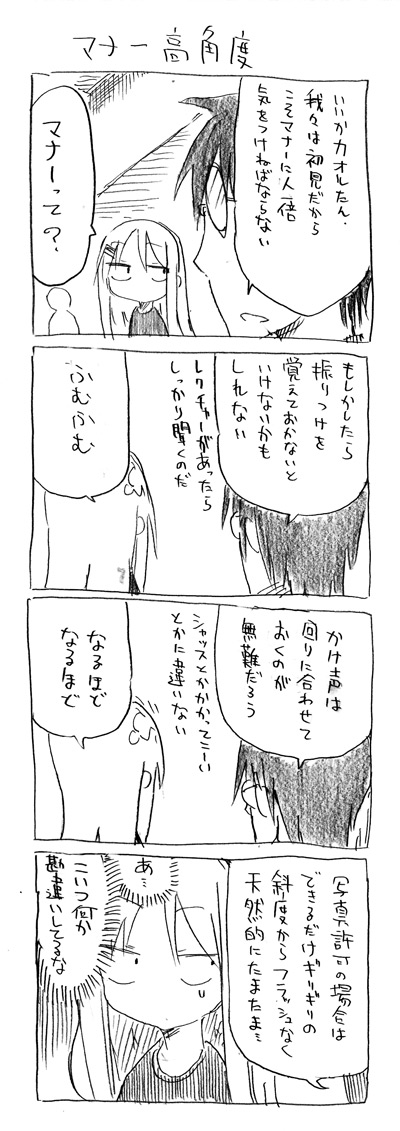 マナー高角度
いいかカオルたん、
我々は初見だから
こそマナーに人一倍
気をつけねばならない
マナーって？
もしかしたら
振りつけを
覚えておかないと
いけないかも
しれない
レクチャーがあったら
しっかり聞くのだ
ふむふむ
かけ声は
回りに合わせて
おくのが
無難だろう
シャッスとかかかってこーい
とかに違いない
なるほど
なるほど
写真許可の場合は
できるだけギリギリの
斜度からフラッシュなく
天然的にたまたま…
あ…
こいつ何か
勘違いしてるな